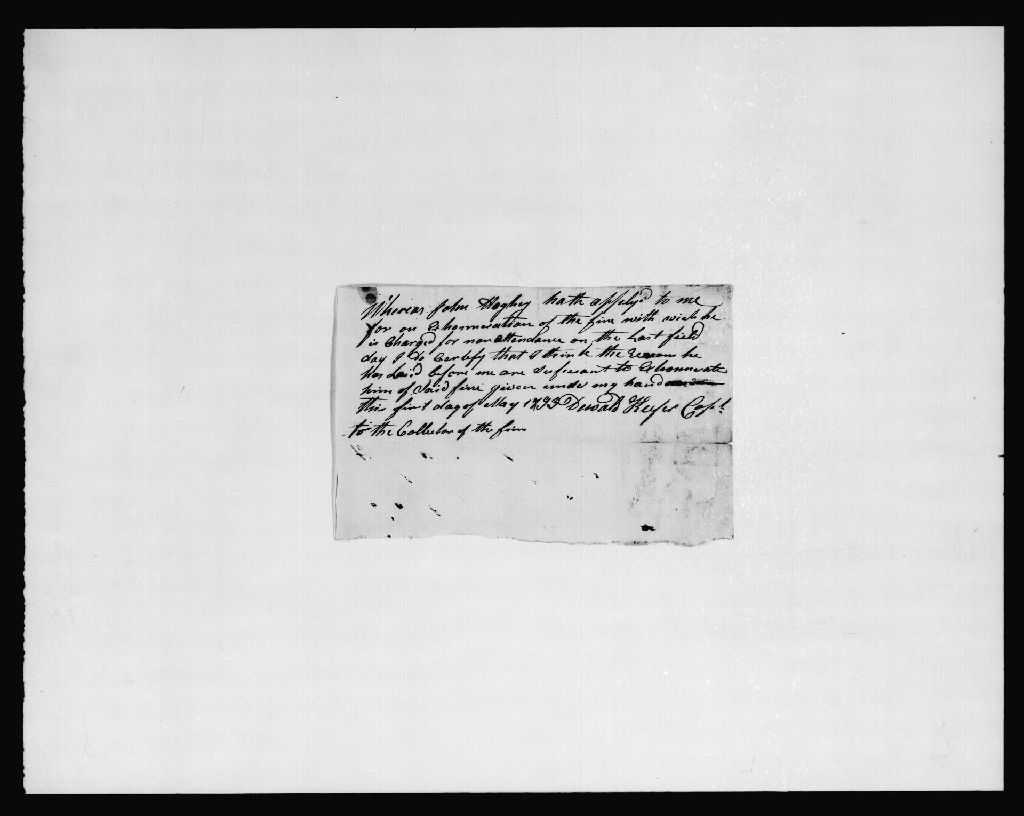 Whereas John Haghey hath applyd to me
for an Exhonneration of the fine with wich he
is Charged for nonattendance on the Last field
day I do Certefy that I think the reason he
Has Laid before me are Sufisiant to Exhonnerate
him of Said fine given under my hand
this first day of May 1793 Dewald Keefer Capt
to the Collector of the fines